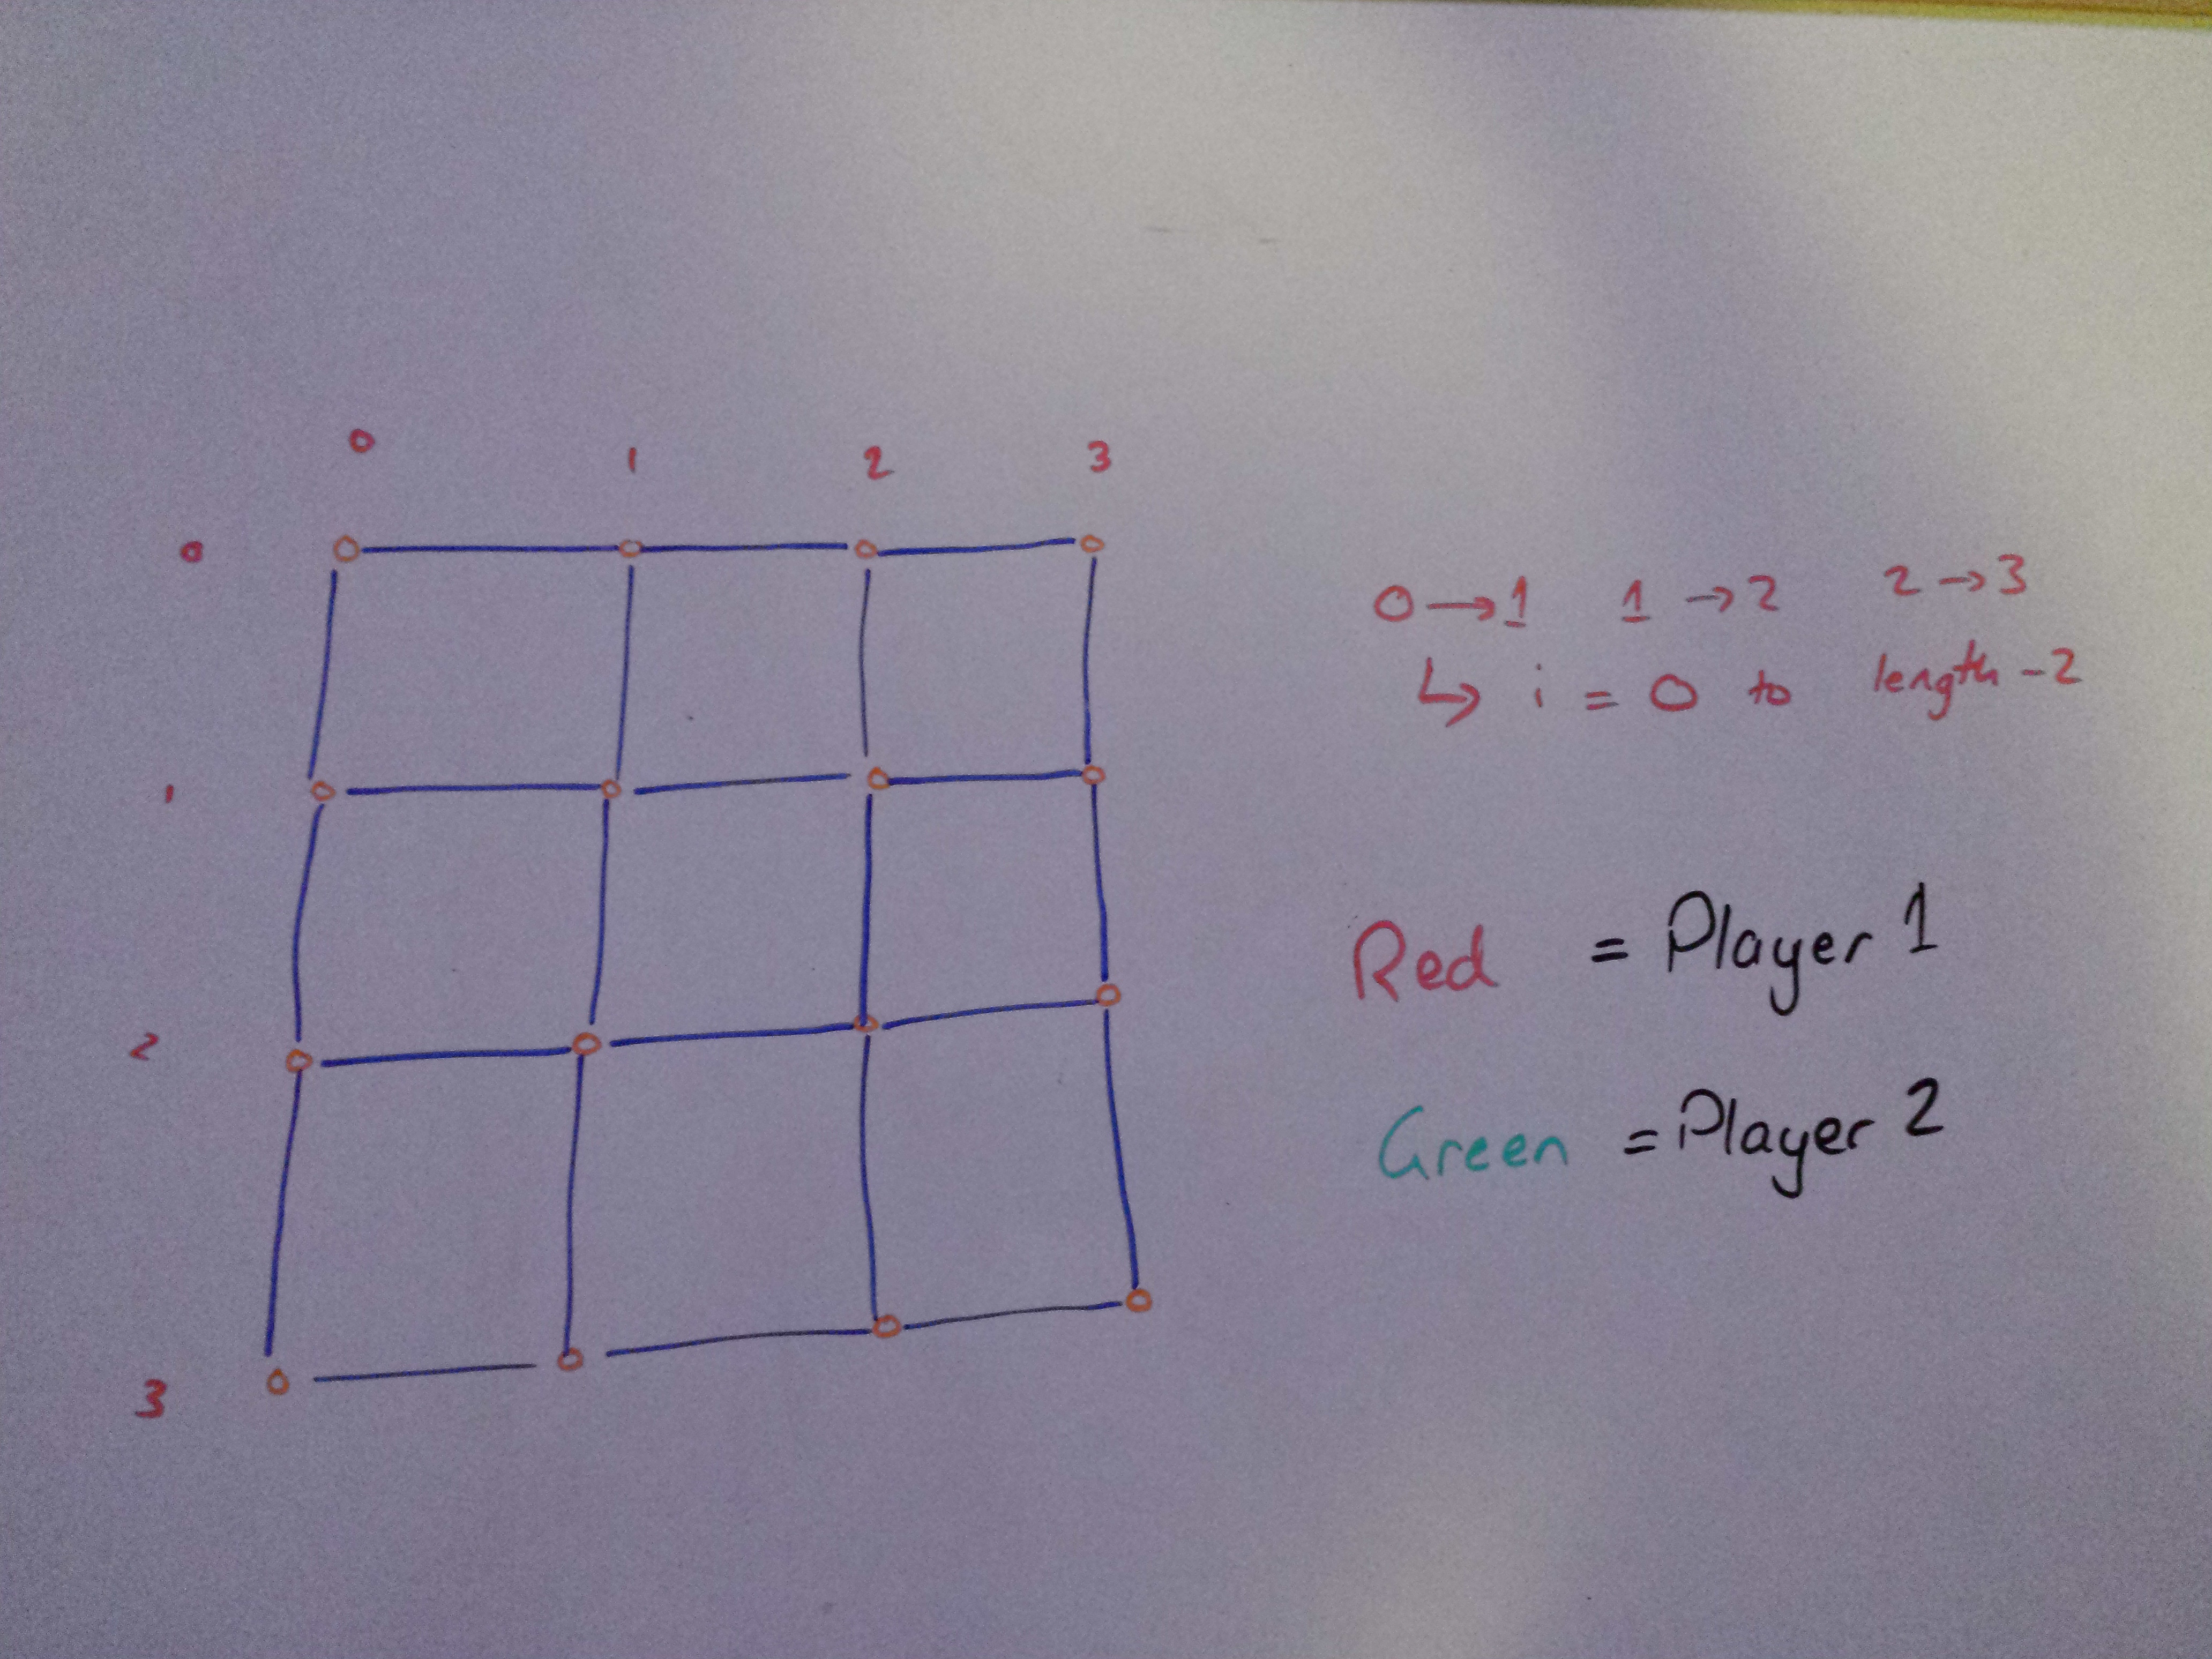 0 1 2 3
0
0 → 1 1 → 2 2 → 3
↳ i = 0 to length - 2
1
Red = Player 1
2
Green = Player 2
3